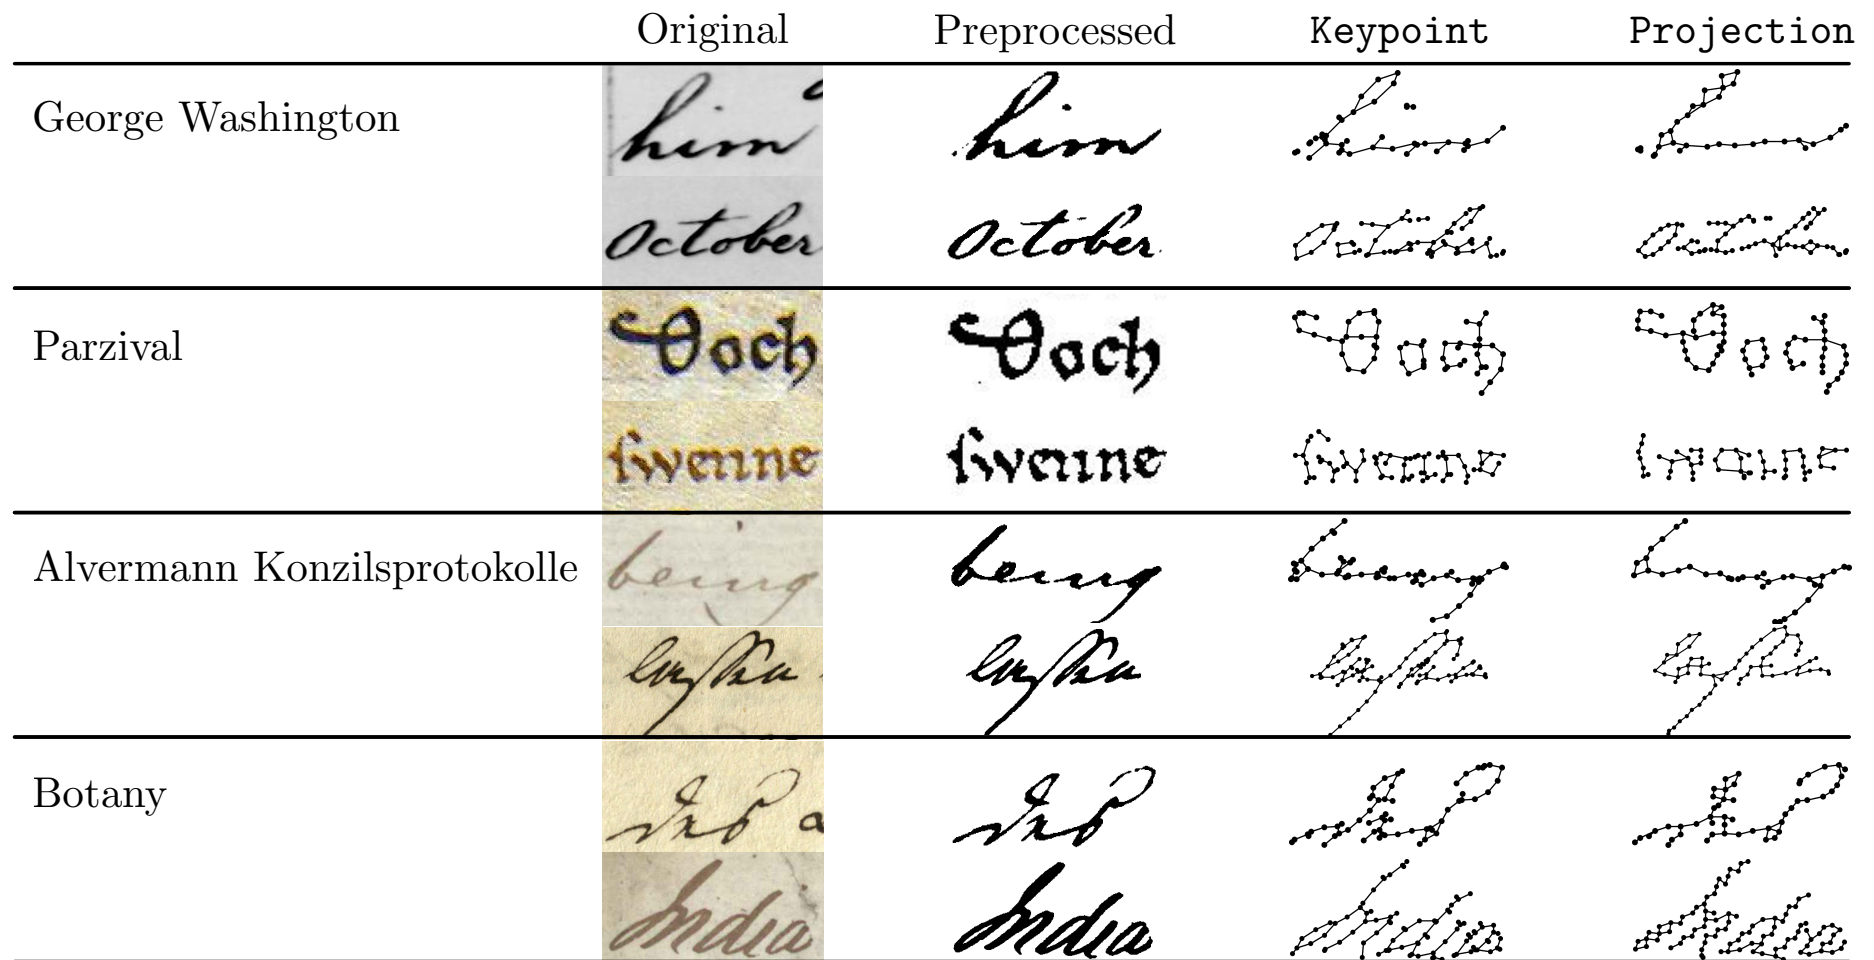 Original Preprocessed Keypoint Projection
George Washington him him
October October
Parzival Doch Doch
swenne swenne
Alvermann Konzilsprotokolle being being
Botany
India India